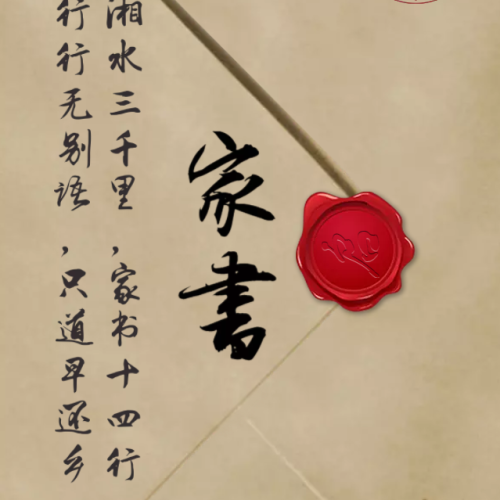 湘水三千里,家书十四行
行行无别语,只道早还乡
家書